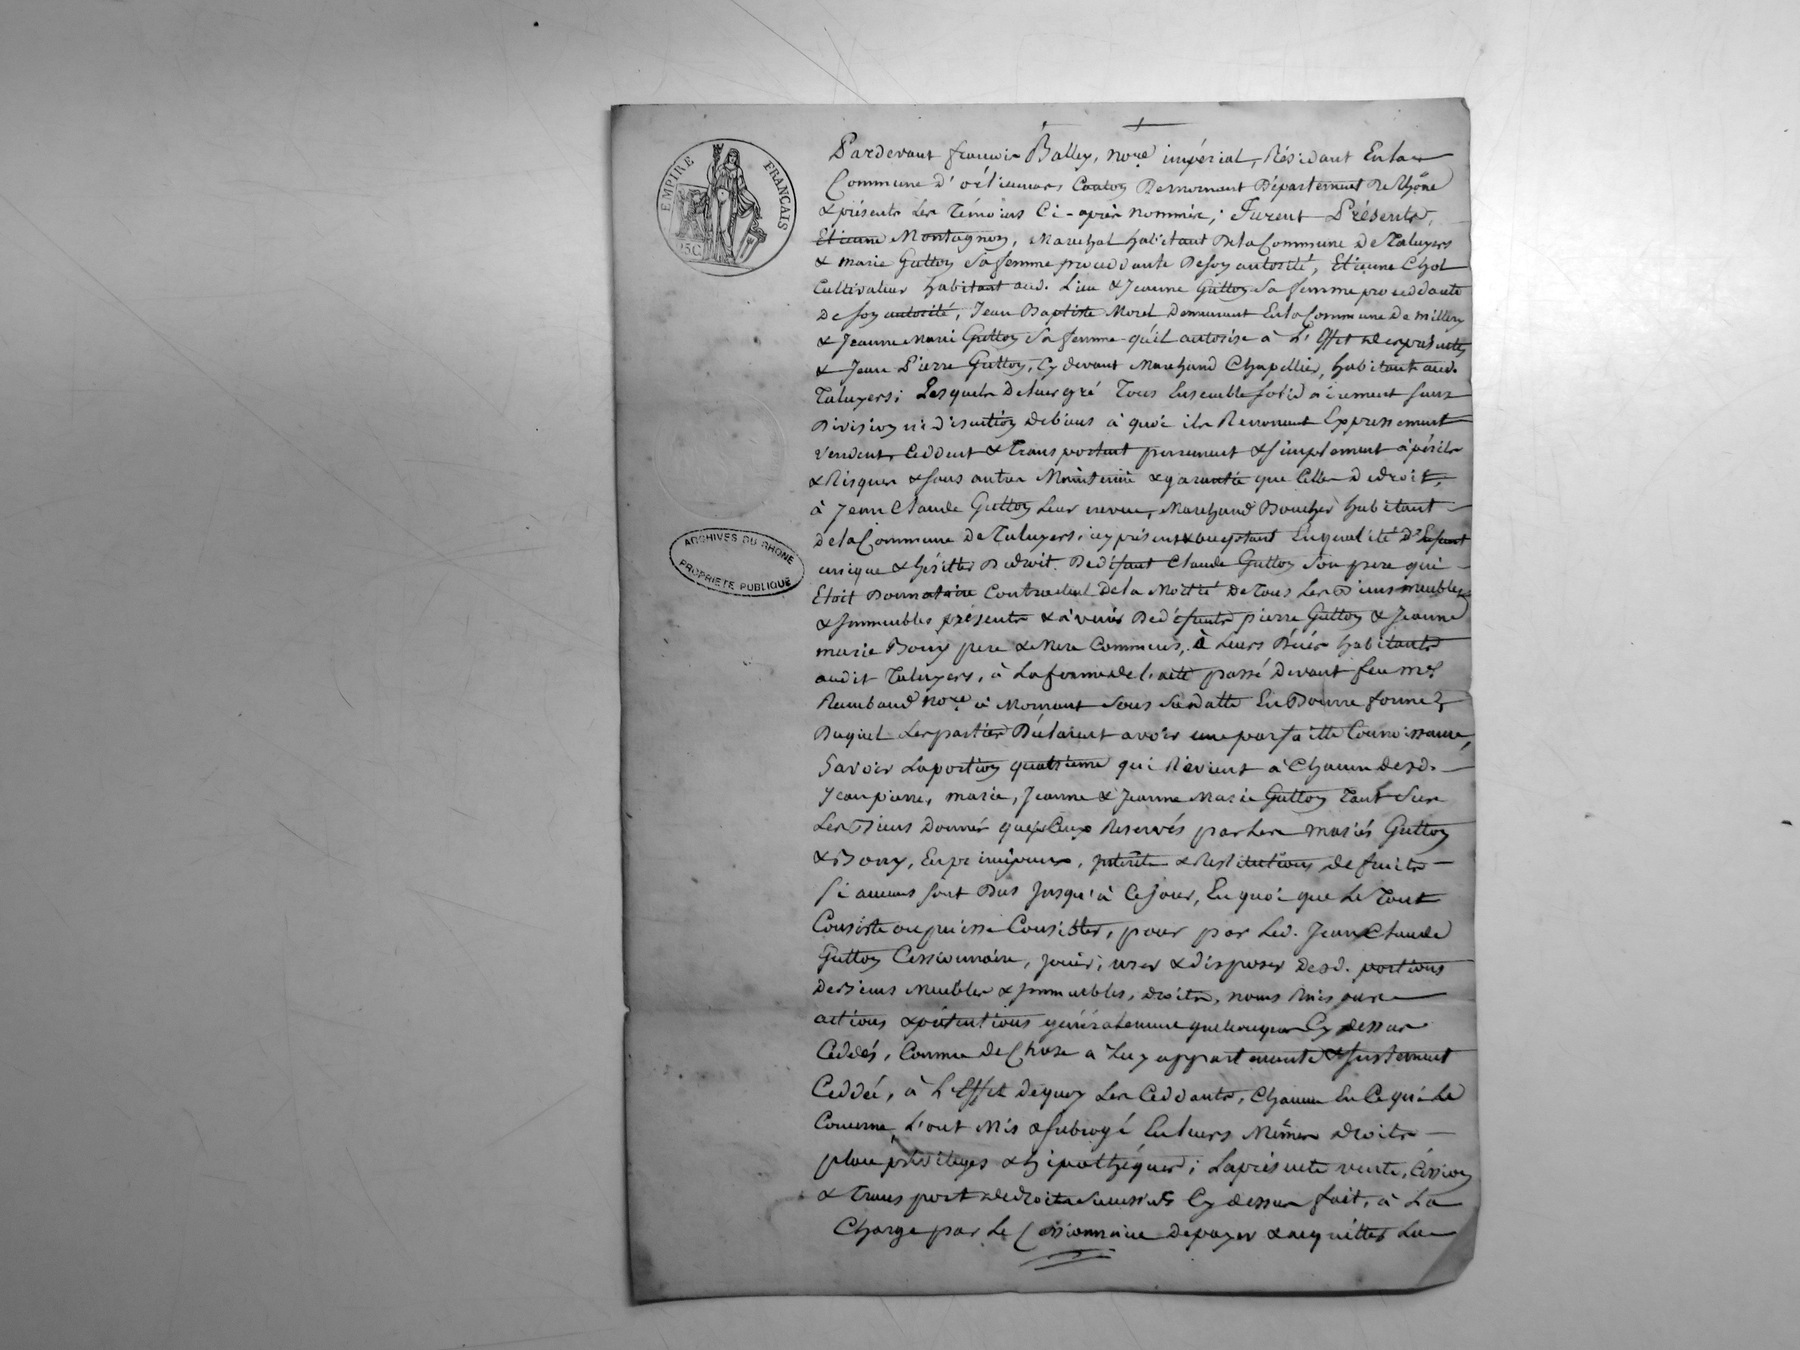 EMPIRE FRANÇAIS
75C
ARCHIVES DU RHÔNE
PROPRIETE PUBLIQUE
Pardevant françois Balley, nore impérial, Résidant En la
Commune d'orliennas Canton De mornant Département Du Rhône
& présents Les Témoins Ci-après nommés, furent Présents,
Etienne Montagnon, Marechal habitant De la Commune de Taluyers
& marie Guttoy Sa femme proceddante De Son autorité, Etienne Chol
Cultivateur habitant aud. Lieu & Jeanne Guttoy Sa femme proceddante
De Son autorité, Jean Baptiste Morel Demeurant En la Commune De millery
& Jeanne Marie Guttoy Sa femme qu'il autorise à L'Effet des présentes
& Jean Pierre Guttoy, Cy devant Marchand Chapellier, habitant aud.
Taluyers; Lesquels De leur gré Tous Ensemble solidairement sans
Division ni discution De biens à quoi ils Renoncent Expressement
vendent, Ceddent & Transportent purement & simplement à périls
& Risques & sans autre Maintenüe & garantie que Celle De droit,
à Jean Claude Guttoy Leur neveu, Marchand Boucher habitant
De la Commune De Taluyers; icy présent & acceptant En qualité D'Enfant
unique & héritier De droit De défunt Claude Guttoy Son pere qui
Etoit Donnataire Contractuel De la Moitié De Tous Les Biens meubles
& Immeubles présents & à venir De défunts pierre Guttoy & Jeanne
marie Bony pere & Mere Communs, à Leurs Décès habitants
audit Taluyers, à La forme de l'acte passé Devant feu me
Rambaud nore à Mornant Sous Sa datte En Bonne forme,
Duquel Les parties Déclarent avoir une parfaitte Connoissance,
Savoir La portion quatrieme qui Revient à Chacun desd.
Jean pierre, marie, Jeanne & Jeanne Marie Guttoy Tant Sur
Les Biens Donnés que sur Ceux Reservés par Les mariés Guttoy
& Bony, En principaux, intérêts & Restitutions de fruits
Si aucuns Sont Dus Jusqu'à Ce jour, En quoi que Le Tout
Consiste ou puisse Consister, pour par Led. Jean Claude
Guttoy Cessionnaire, jouir, user & disposer Desd. portions
De Biens Meubles & Immeubles, droits, noms Raisons
actions & prétentions généralement quelconques Cy dessus
Ceddés, Comme de Chose à Luy appartenante & justement
Ceddée, à L'Effet de quoy Les Ceddants, Chacun En Ce qui Le
Concerne, L'ont Mis & subrogé En Leurs Mêmes droits
place privileges & hipothéques; La présente vente, Cession
& Transport de droits Successifs Cy dessus fait, à La
Charge par Le Cessionnaire de payer & acquitter La